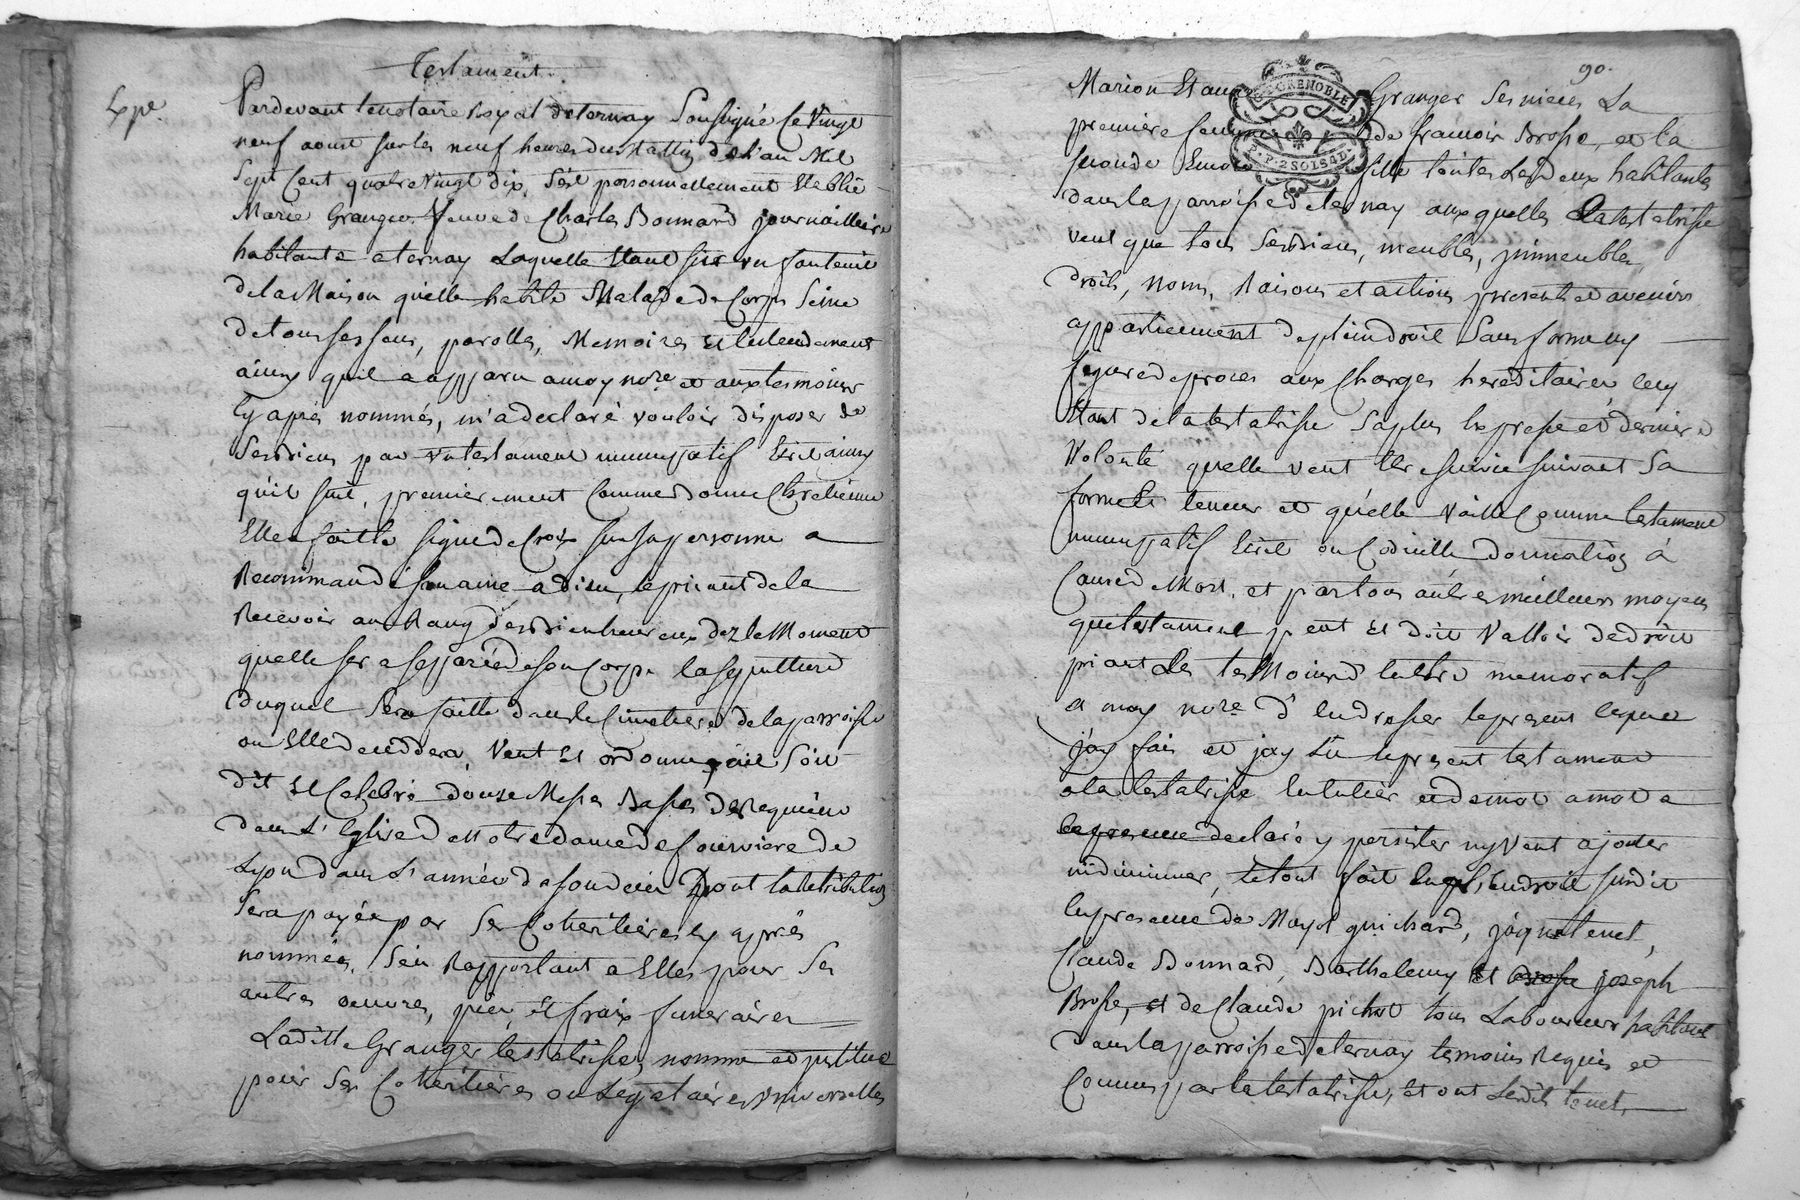 Testament.
Expé.
Pardevant le notaire Royal de ternay Soussigné Ce Vingt
neuf aoust sur les neuf heures du Mattin de l'an Mil
Sept Cent quatre Vingt dix, S'est personnellement Etablie
Marie Granger Veuve de Charles Bonnard journailliere
habitante a ternay Laquelle Etant sise un fauteuil
de la Maison qu'elle habite Malade de Corps Seine
de tous ses sens, parolles, Memoires et Entendement
ainsy quil a apparu a moy nore et aux temoins
Cy apres nommés, m'a declaré vouloir disposer de
Ses biens par un testament nuncupatif Ecrit ainsy
qu'il suit, premierement Comme bonne Chretienne
Elle a fait le signe de Croix sur sa personne a
Recommandé son ame a dieu, le priant de la
Recevoir au Rang des bienheureux dez le Moment
quelle sera Separée de son Corps la sepulture
duquel Sera faitte dans le Cimetiere de la parroisse
ou Elle decedera, Veut Et ordonne qu'il Soit
dit Et Celebré douze Messes Basses de Requiem
dans L'Eglise de Notre dame de fourviere de
Lyon dans L'année de son deces Dont la Retribution
Sera payée par Ses Coheritieres cy après
nommées, S'en Rapportant a Elles pour Ses
autres oeuvres, pies, Et fraix funeraires
Laditte Granger testatrisse, nomme et institue
pour Ses Coheritieres ou Legataires universelles
90.
Marion Et Granger Ses nieces La
premiere femme de francois Brosse, et la
seconde fille toutes Les deux habitantes
dans la parroisse de ternay auxquelles La testatrisse
veut que tous Ses biens, meubles, immeubles,
droits, noms, Raisons et actions presents et avenirs
appartiennent de plein droit Sans forme ny
figure de proces aux Charges hereditaires Cecy
Etant de la testatrisse Sa plus Expresse et derniere
Volonté qu'elle veut Etre suivie suivant Sa
forme Et teneur et qu'elle Vaille Comme testament
nuncupatif Ecrit ou Codicille donnation à
Cause de Mort, et par tous autres meilleurs moyens
que testament peut Et doit Valloir de droit
priant Les temoins d'en Etre memoratif
et moy nore d'en dresser le present lequel
j'ay fait et jay Lu le present testament
a la testatrisse en Entier et de mot a mot a
declaré y persister ny Veut ajouter
ni diminuer, Le tout fait Endroit susdit
En presence de guichard, tenet,
Claude Bonnard, Barthelemy Et joseph
Brosse, et de Claude pichat tous Laboureurs habitant
dans la parroisse de ternay temoins Requis et
Connus par la testatrisse, Et ont Lesdits tenet,
G. GRENOBLE
P.P. 2 SOLS 4 D.